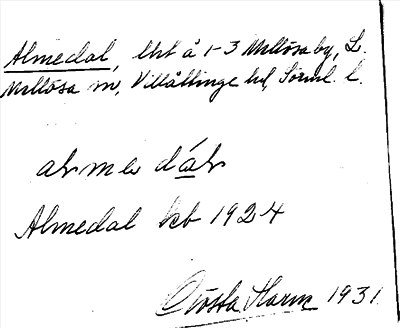 Almedal, lht å 1-3 Mellösa by, L.
Mellösa sn, Villåttinge hd, Sörml. l.
almedál
Almedal kb 1924
Gösta Harm 1931